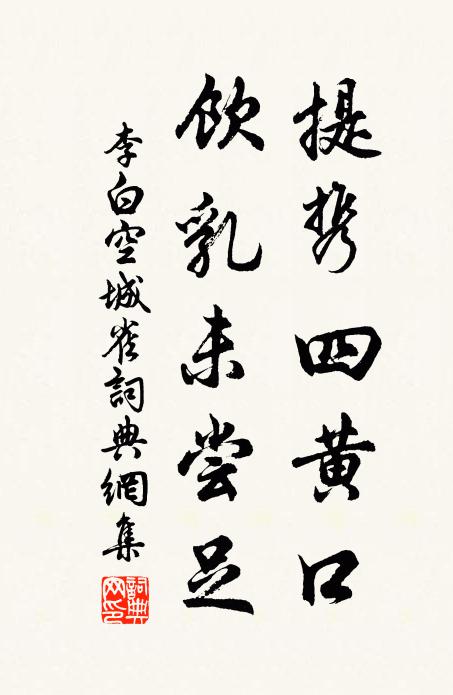 提携四黄口
飲乳未尝足
李白空城雀詞典網集
詞典網印